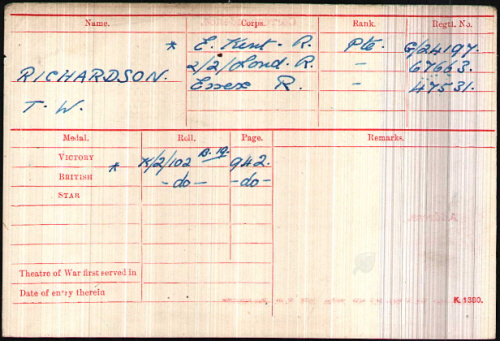 Name. Corps. Rank. Regtl. No.
* E. Kent. R. Pte. G/24197.
RICHARDSON. 2/2/Lond. R. — 67663.
T. W. Essex R. — 47531.
Medal. Roll. Page. Remarks.
VICTORY * K/2/102 B.19. 942.
BRITISH -do- -do-
STAR
Theatre of War first served in
Date of entry therein
K. 1380.